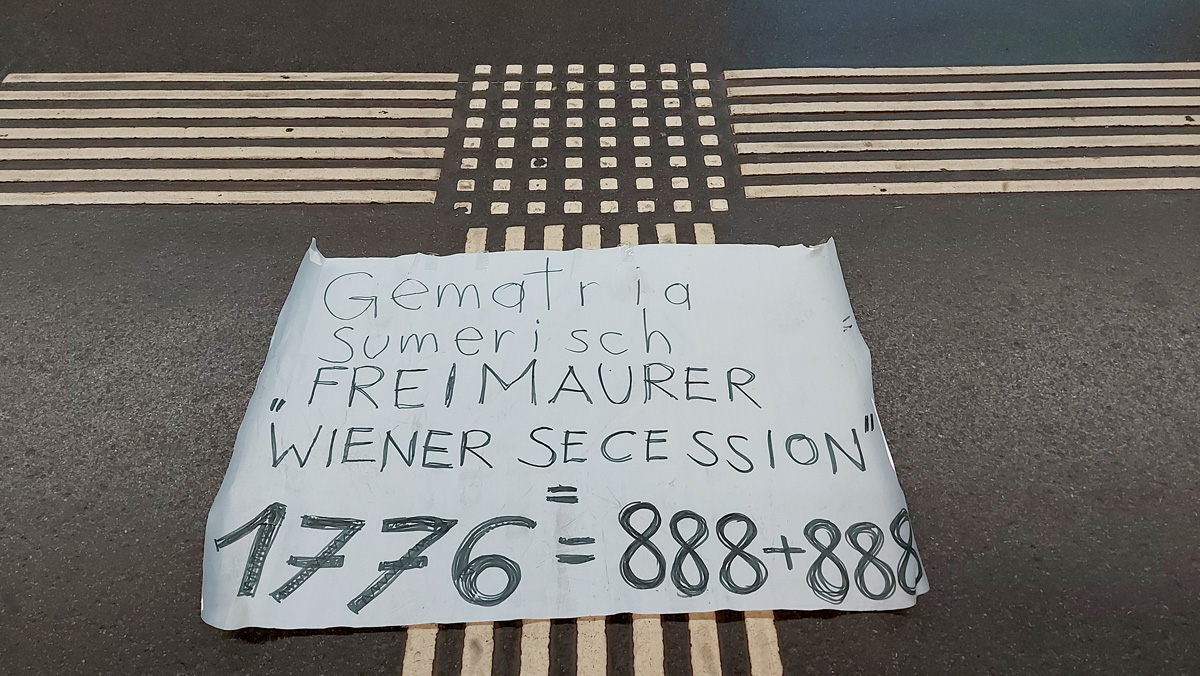 Gematria
sumerisch
„FREIMAURER
WIENER SECESSION"
=
1776 = 888+888